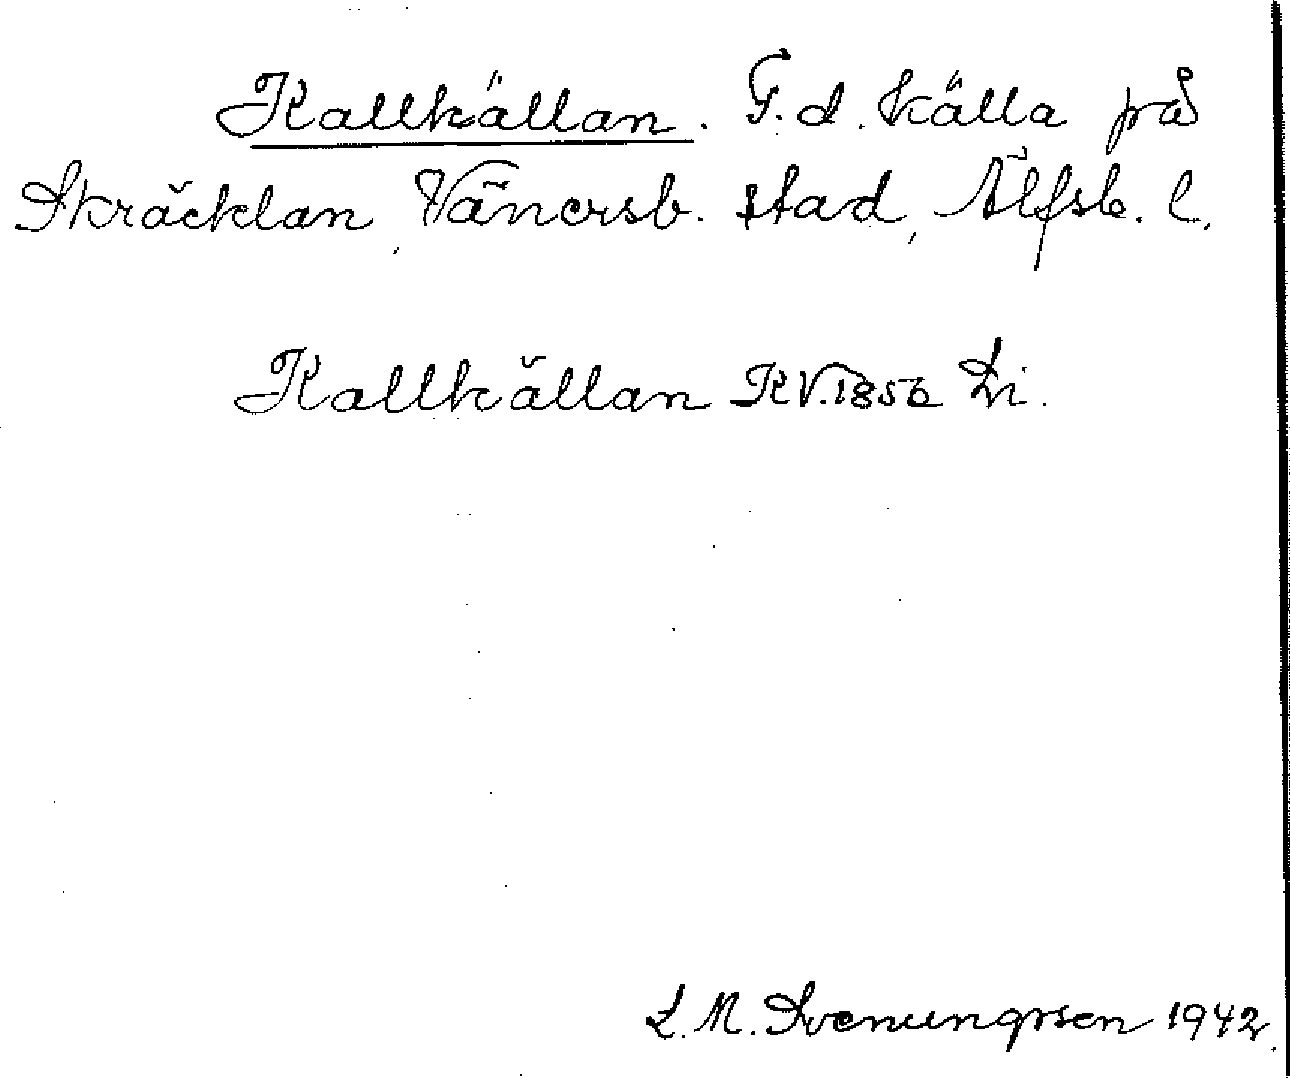 Kallkällan. F.d. källa på
Skräcklan, Vänersb. stad, Älfsb. l.
Kallkällan KV.1856 Li.
L.M. Svenungsson 1942.